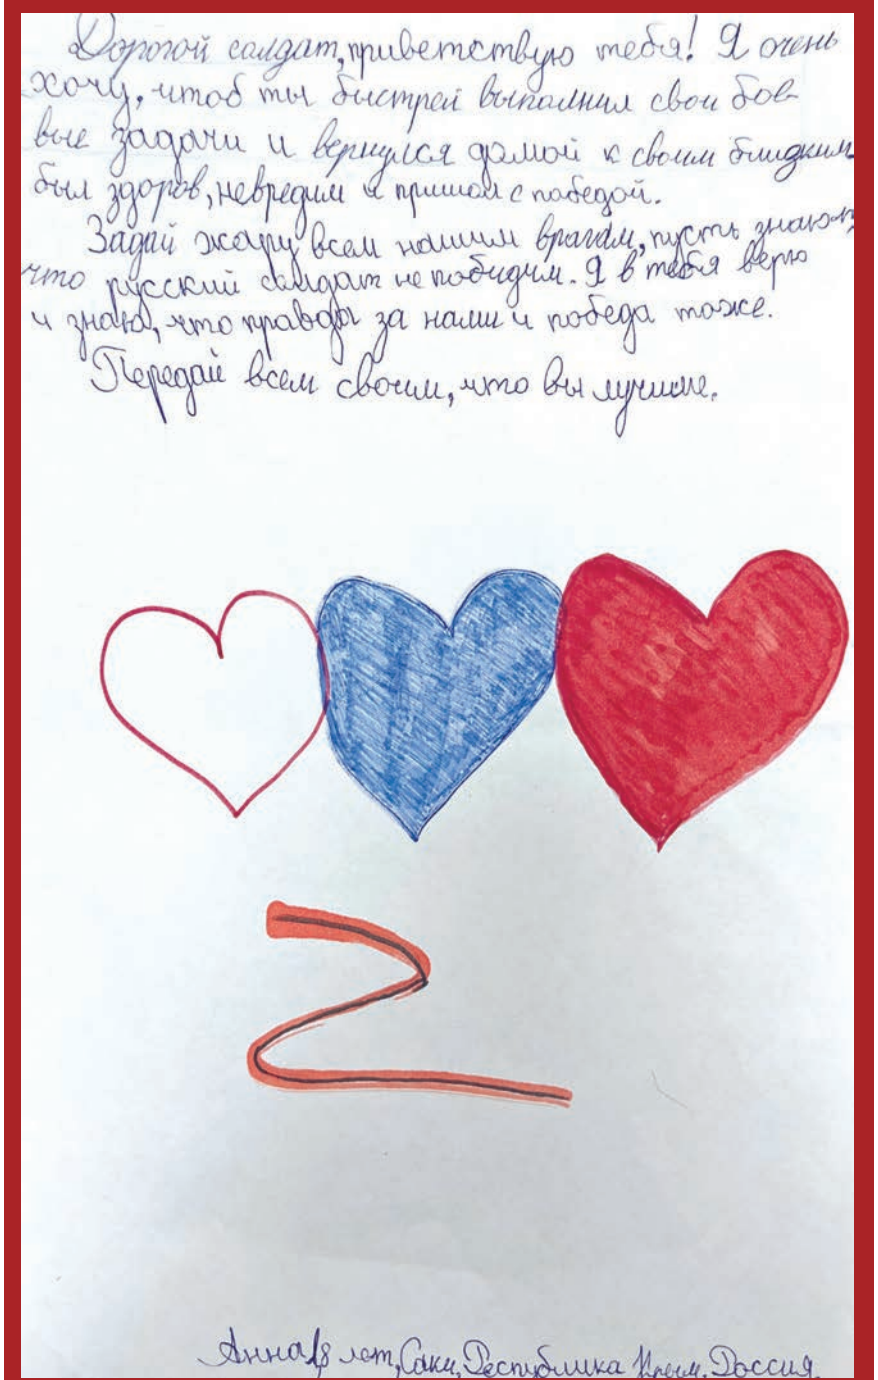 Дорогой солдат, приветствую тебя! Я очень
хочу, чтоб ты быстрей выполнил свои бое-
вые задачи и вернулся домой к своим близким
был здоров, невредим и пришол с победой.
Задай жару всем нашим врагам, пусть знают
что русский солдат не победим. Я в тебя верю
и знаю, что правда за нами и победа тоже.
Передай всем своим, что вы лучшие.
Z
Анна, лет, Саки, Республика Крым. Россия.